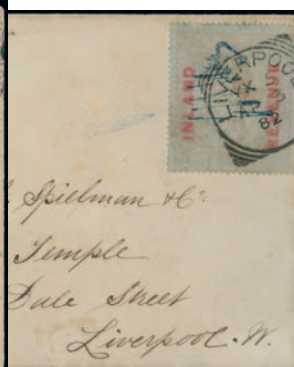 INLAND
REVENUE
LIVERPOOL
82
Spielman & Co:
Temple
Dale Street
Liverpool. W.